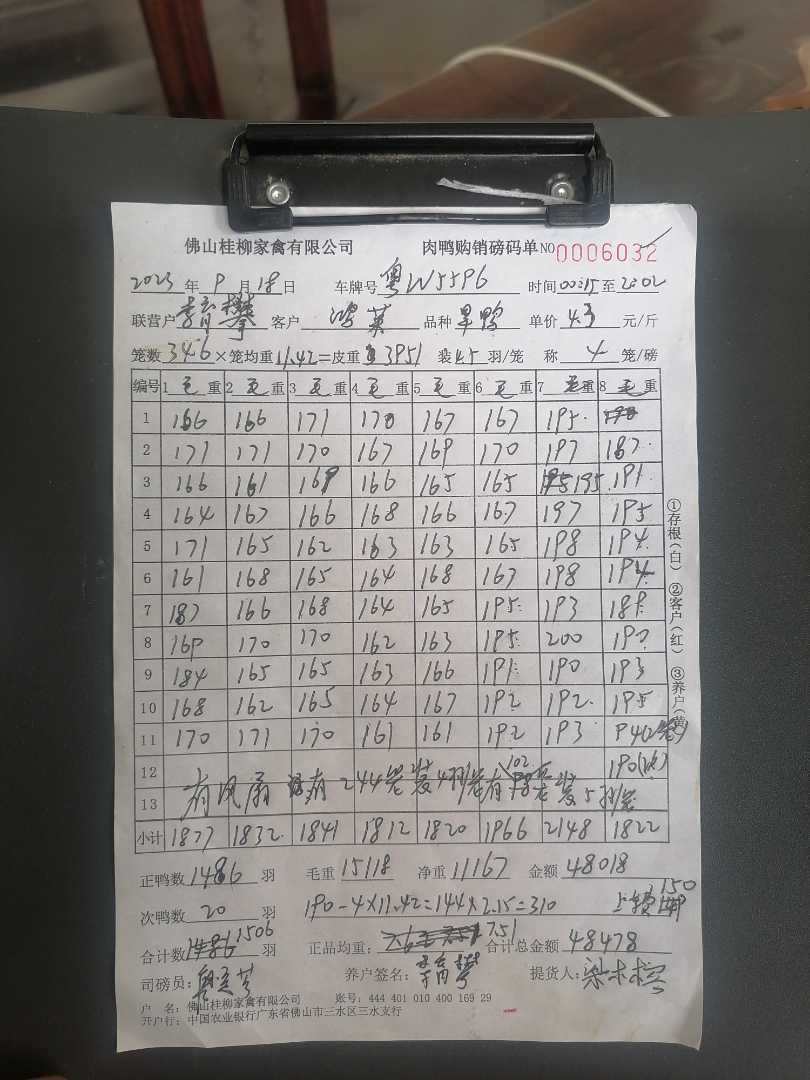 佛山桂柳家禽有限公司 肉鸭购销磅码单NO 0006032
2023年 9月18日 车牌号 粤W5596 时间 00:15至2:02
联营户 客户 鸿英 品种 旱鸭 单价 4.3 元/斤
笼数 346 ×笼均重 11.42=皮重 3951 装 4.5 羽/笼 称 4 笼/磅
编号 1 毛重 2 毛重 3 毛重 4 毛重 5 毛重 6 毛重 7 毛重 8 毛重
1 166 166 171 170 167 167 195
2 171 171 170 167 169 170 197 187
3 166 161 169 166 165 165 195 191
4 164 167 166 168 166 167 197 195
5 171 165 162 163 163 165 198 194
6 161 168 165 164 168 167 198 194
7 187 166 168 164 165 195 193 189
8 169 170 170 162 163 195 200 190
9 184 165 165 163 166 191 190 193
10 168 162 165 164 167 192 192 195
11 170 171 170 161 161 192 193 94(2笼)
12 190(次)
13 有风扇 有244笼装4羽/笼有102笼装5羽/笼
小计 1877 1832 1841 1812 1820 1966 2148 1822
正鸭数 1486 羽 毛重 15118 净重 11167 金额 48018
次鸭数 20 羽 190-4×11.42=144×2.15=310 150
合计数 1506 羽 正品均重: 7.51 合计总金额 48478
司磅员: 养户签名: 提货人:
户 名: 佛山桂柳家禽有限公司 账号: 444 401 010 400 169 29
开户行: 中国农业银行广东省佛山市三水区三水支行
①存根(白) ②客户(红) ③养户(黄)